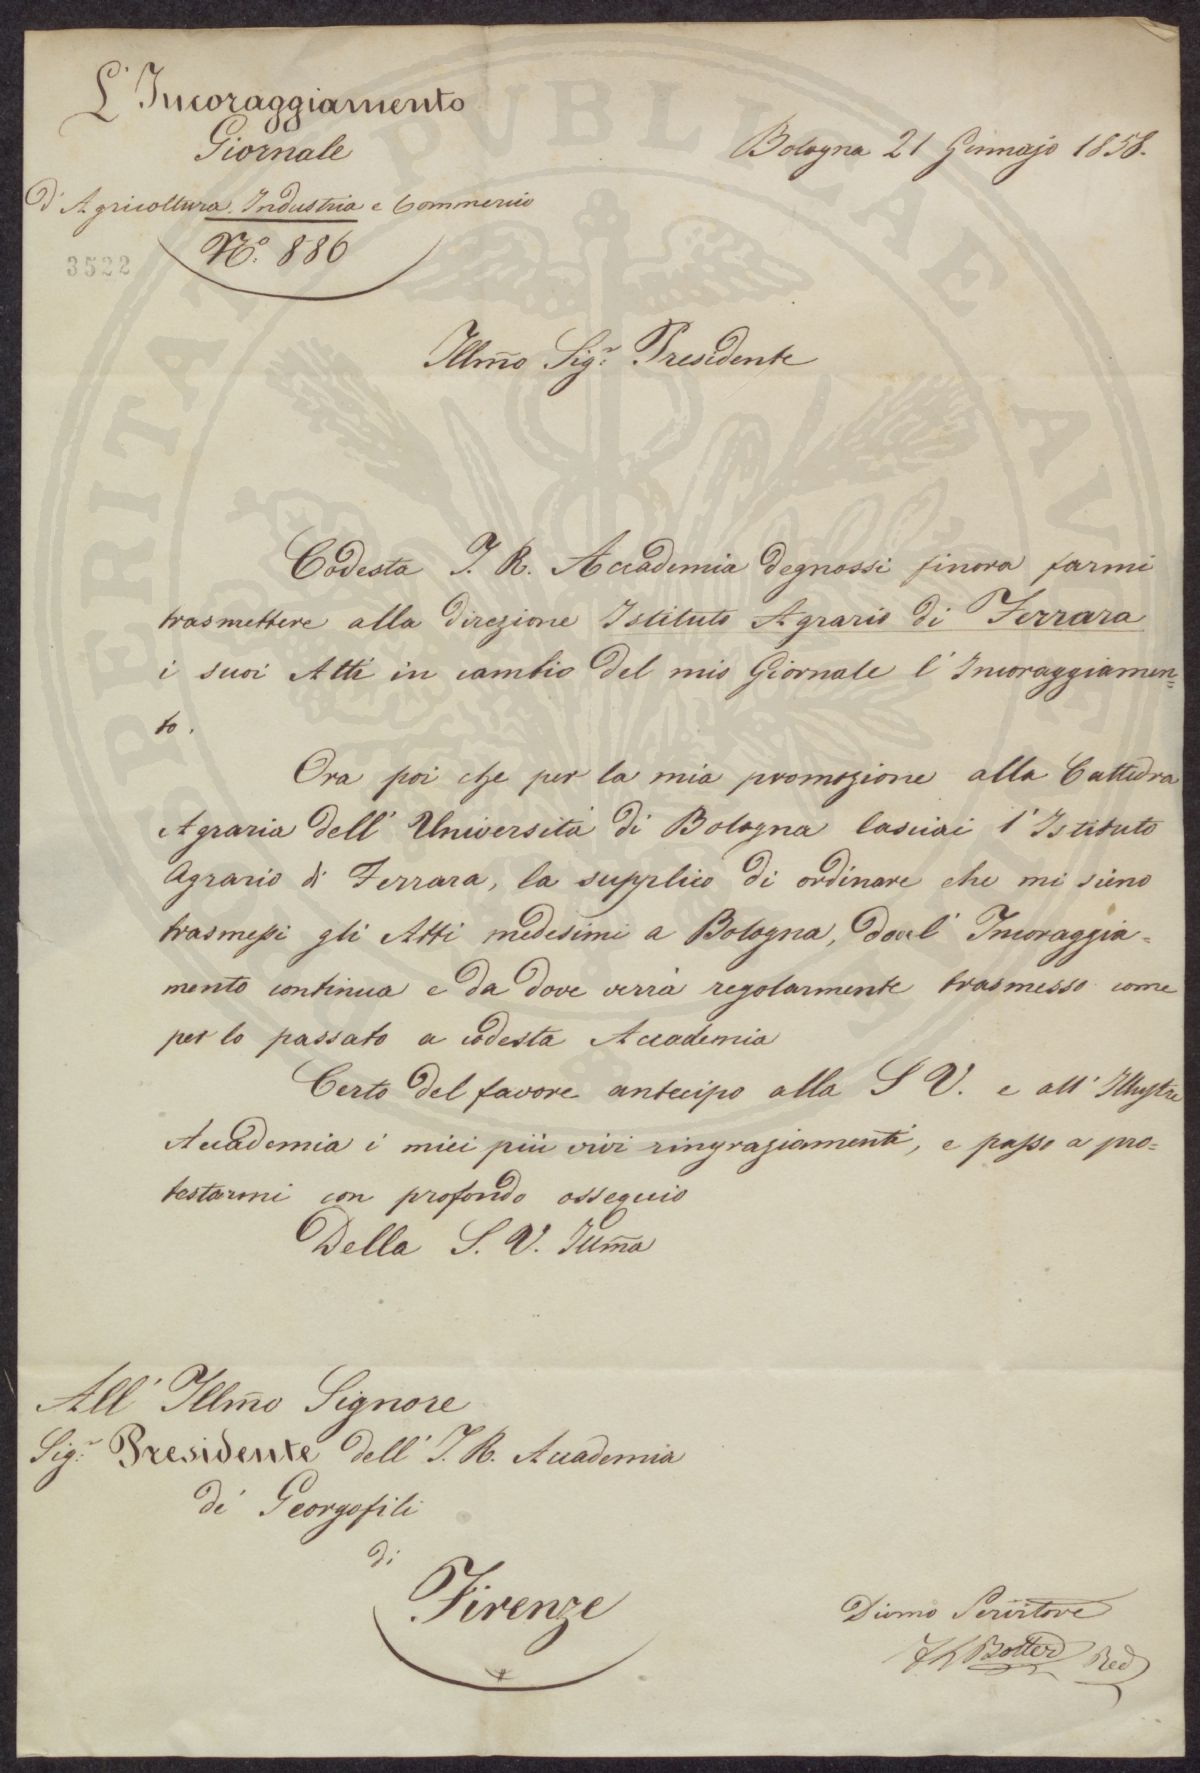 L'Incoraggiamento
Giornale
d'Agricoltura Industria e Commercio
N.° 886
3522
Bologna 21 Gennajo 1858.
Illmo Sigr. Presidente
Codesta I. R. Accademia degnossi finora farmi
trasmettere alla direzione Istituto Agrario di Ferrara
i suoi Atti in cambio del mio Giornale l'Incoraggiamen=
to.
Ora poi che per la mia promozione alla Cattedra
Agraria dell'Università di Bologna lasciai l'Istituto
Agrario di Ferrara, la supplico di ordinare che mi sieno
trasmessi gli Atti medesimi a Bologna, dove l'Incoraggia=
mento continua e da dove verrà regolarmente trasmesso come
per lo passato a codesta Accademia
Certo del favore antecipo alla S V. e all'Illustre
Accademia i miei più vivi ringraziamenti, e passo a pro=
testarmi con profondo ossequio
Della S. V. Illma
All'Illmo Signore
Sigr. Presidente dell'I. R. Accademia
de' Georgofili
di
Firenze
Divmo Servitore
Botter Red
PROSPERITATI PVBLICAE AVGENDAE